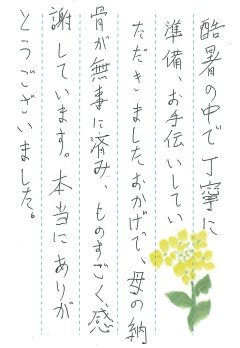 酷暑の中で丁寧に
準備、お手伝いしてい
ただきましたおかげで、母の納
骨が無事に済み、ものすごく、感
謝しています。本当にありが
とうございました。